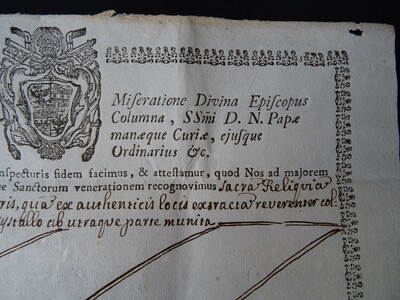 Miseratione Divina Episcopus
Columna, SSmi D. N. Papæ
manæque Curiæ, ejusque
Ordinarius &c.
nspecturis fidem facimus, & attestamur, quod Nos ad majorem
e Sanctorum venerationem recognovimus sacra Reliquia
ris, quæ ex authenticis locis extracta reverenter col
ystallo ab utraque parte munita